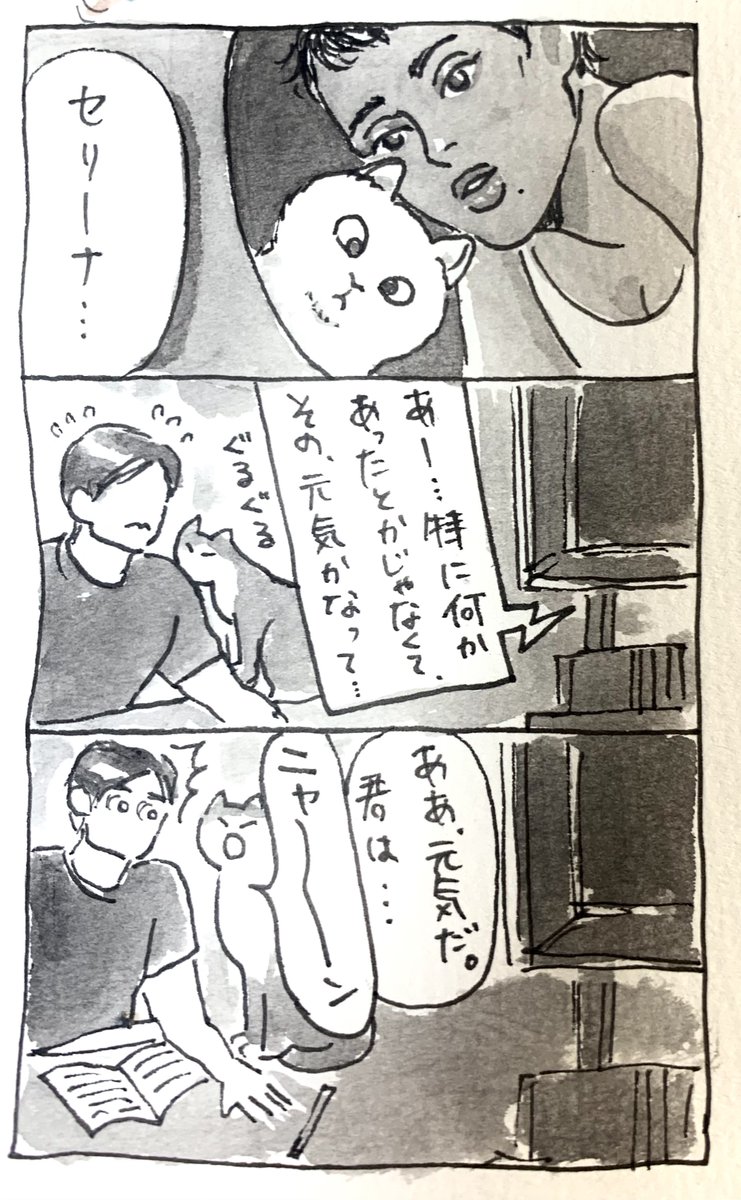 セリーナ…
あー…特に何か
あったとかじゃなくて、
その、元気かなって…
ぐるぐる
ああ、元気だ。
君は…
ニャーーン